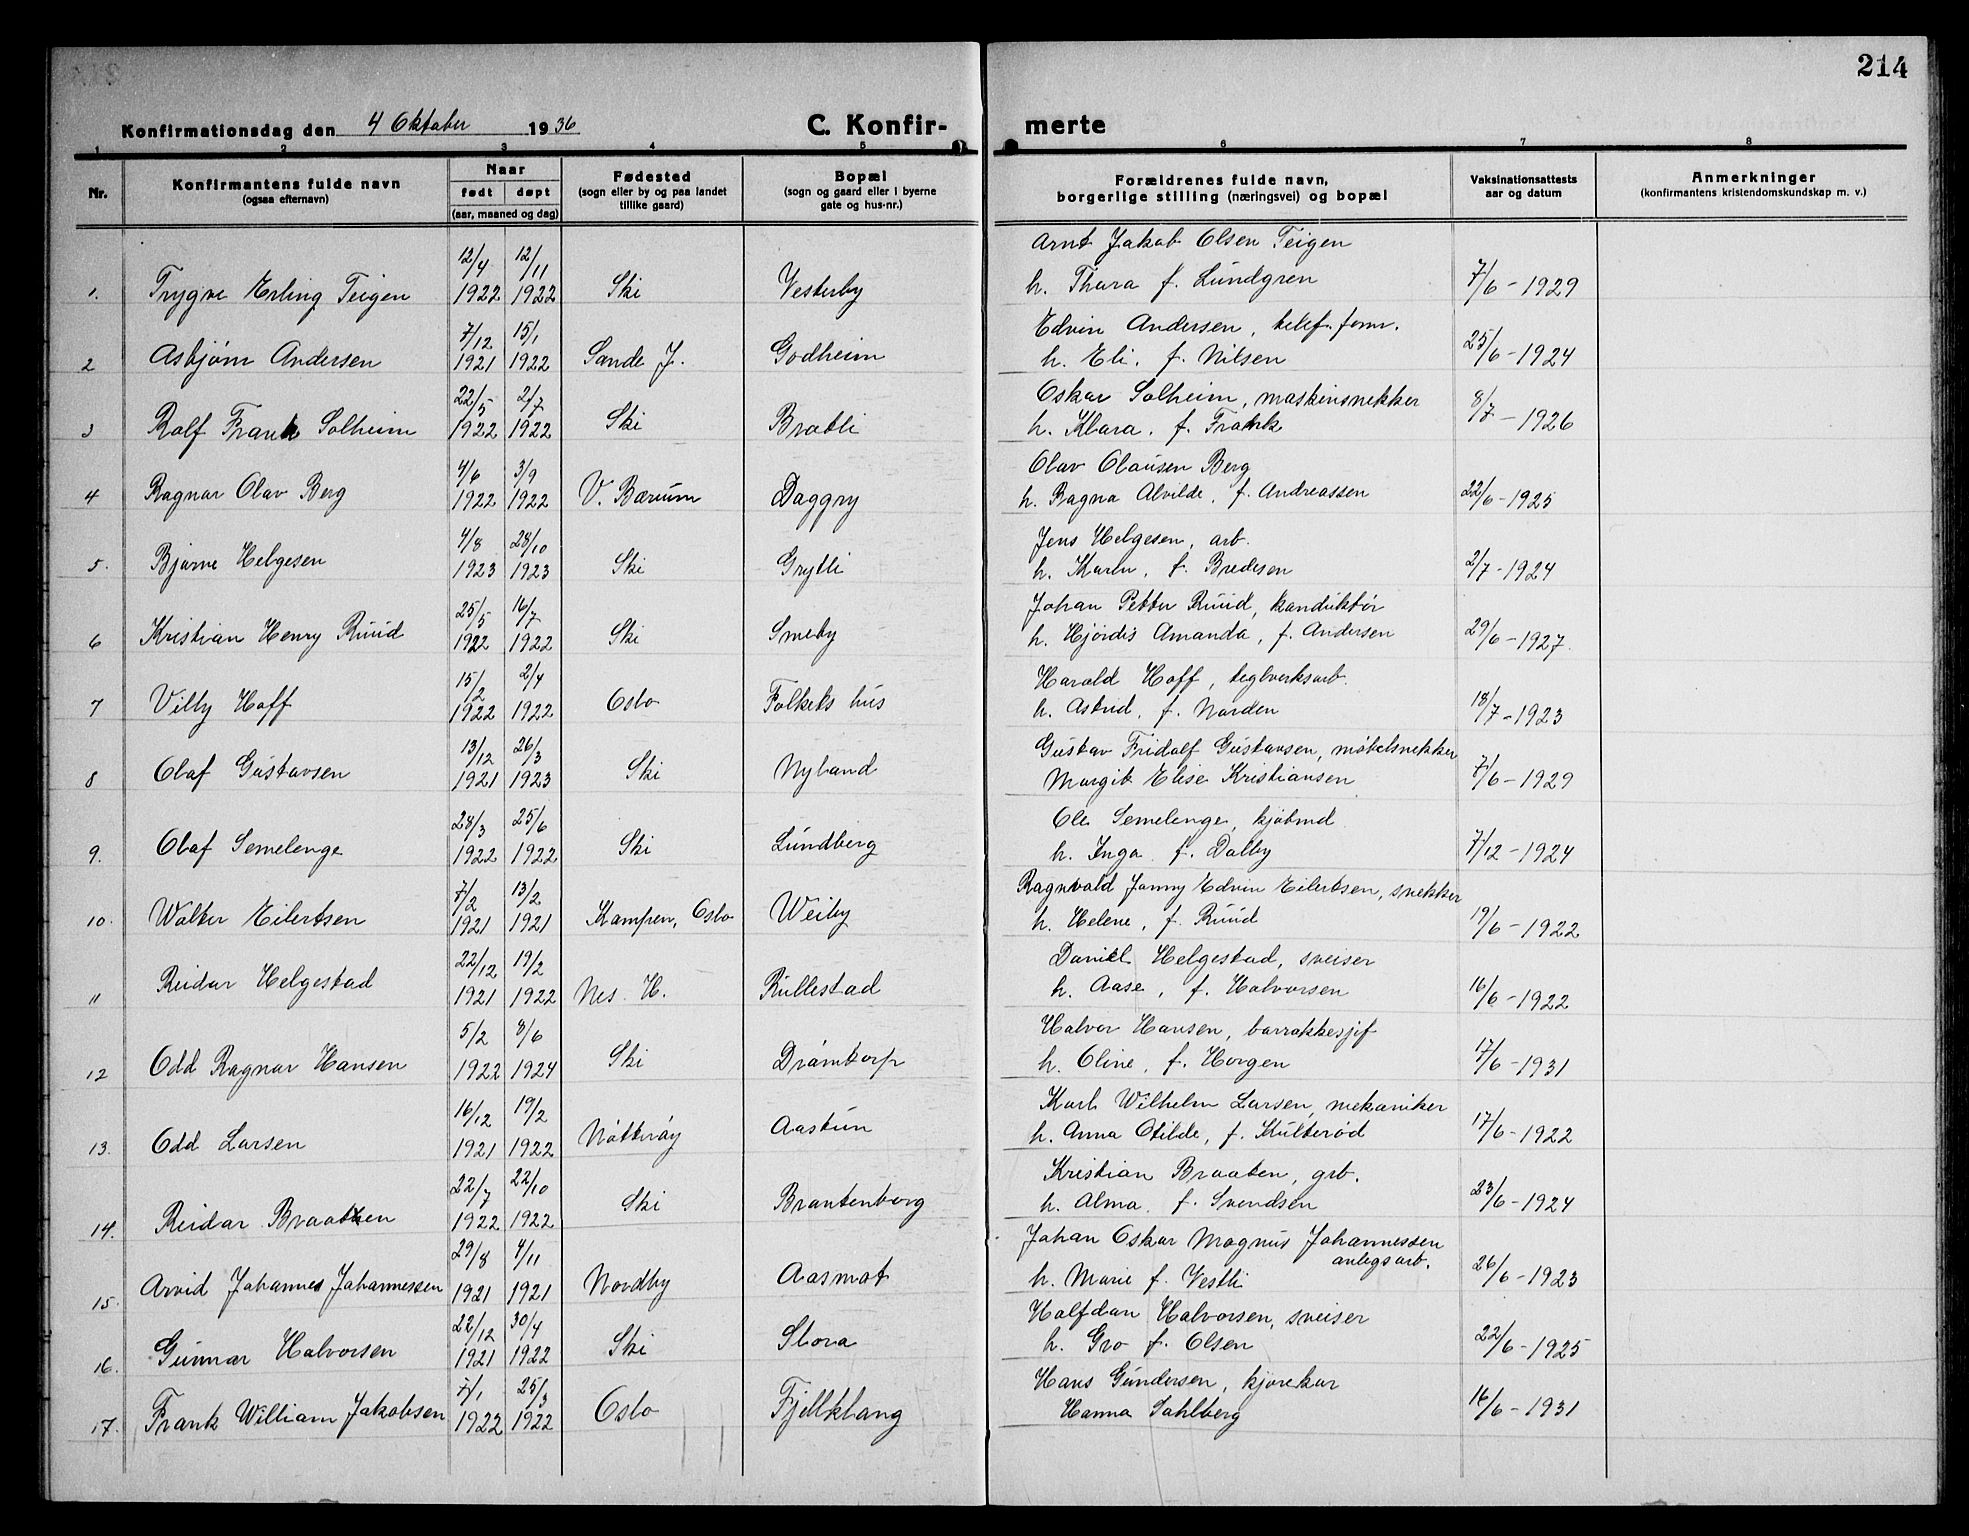 214
Konfirmationsdag den 4 Oktober 1936 C. Konfir- merte
1 2 3 4 5 6 7 8
Nr. Konfirmantens fulde navn (ogsaa efternavn) Naar født døpt (aar, maaned og dag) Fødested (sogn eller by og paa landet tillike gaard) Bopæl (sogn og gaard eller i byerne gate og hus-nr.) Forældrenes fulde navn, borgerlige stilling (næringsvei) og bopæl Vaksinationsattests aar og datum Anmerkninger (konfirmantens kristendomskundskap m. v.)
12/4 12/11 Arnt Jakob Olsen Teigen
1. Trygve Erling Teigen 1922 1922 Ski Vesterby h. Thara f. Lundgren 7/6-1929
7/12 15/1 Edvin Andersen, telef.form.
2 Asbjørn Andersen 1921 1922 Sande J. Godheim h. Eli. f. Nilsen 25/6-1924
22/5 2/7 Oskar Solheim, maskinsnekker
3 Rolf Frank Solheim 1922 1922 Ski Bratli h. Klara. f. Frank 8/7-1926
4/6 3/9 Olav Clausen Berg
4 Ragnar Olav Berg 1922 1922 V. Bærum Daggry h. Ragna Alvilde, f. Andreassen 22/6-1925
4/8 28/10 Jens Helgesen, arb.
5. Bjarne Helgesen 1923 1923 Ski Grytli h. Karen, f. Bredesen 2/7-1924
25/5 16/7 Johan Petter Ruud, konduktør
6 Kristian Henry Ruud 1922 1922 Ski Smeby h. Hjørdis Amanda, f. Andersen 29/6-1927.
15/2 2/4 Harald Hoff, teglverksarb.
7 Villy Hoff 1922 1922 Oslo Folkets hus h. Astrid, f. Norden 18/7-1923
13/12 26/3 Gustav Fridolf Gustavsen, møbelsnekker
8 Olaf Gustavsen 1921 1923 Ski Nyland Margit Elise Kristiansen 7/6-1929
28/3 25/6 Ole Semelenge, kjøbmd
9. Olaf Semelenge 1922 1922 Ski Lundberg h. Inga f. Dalby 7/12-1924
7/2 13/2 Ragnvald Jonny Edvin Eilertsen, snekker
10. Walter Eilertsen 1921 1921 Kampen, Oslo Weiby h. Helene, f. Ruud 19/6-1922
22/12 19/2 Daniel Helgestad, sveiser
11 Reidar Helgestad 1921 1922 Nes. H. Rullestad h. Aase, f. Halvorsen 16/6-1922
5/2 8/6 Halvor Hansen, barrakkesjef
12 Odd Ragnar Hansen 1922 1924 Ski Drømtorp h. Oline, f. Horgen 17/6-1931
16/12 19/2 Karl Wilhelm Larsen, mekaniker
13. Odd Larsen 1921 1922 Nøtterøy Aastun h. Anna Otilde, f. Kulterød 17/6-1922
22/7 22/10 Kristian Braaten, grb.
14. Reidar Braathen 1922 1922 Ski Brantenborg h. Alma f. Svendsen 23/6-1924
29/8 4/11 Johan Oskar Magnus Johannessen
anlegsarb.
15. Arvid Johannes Johannessen 1921 1921 Nordby Aasmot h. Marie f. Vestli 26/6-1923
22/12 30/4 Halfdan Halvorsen, sveiser
16. Gunnar Halvorsen 1921 1922 Ski Stora h. Gro f. Olsen 22/6-1925
7/1 25/3 Hans Gundersen, kjørekar
17. Frank William Jakobsen 1922 1922 Oslo Fjellklang Hanna Sahlberg 16/6-1931